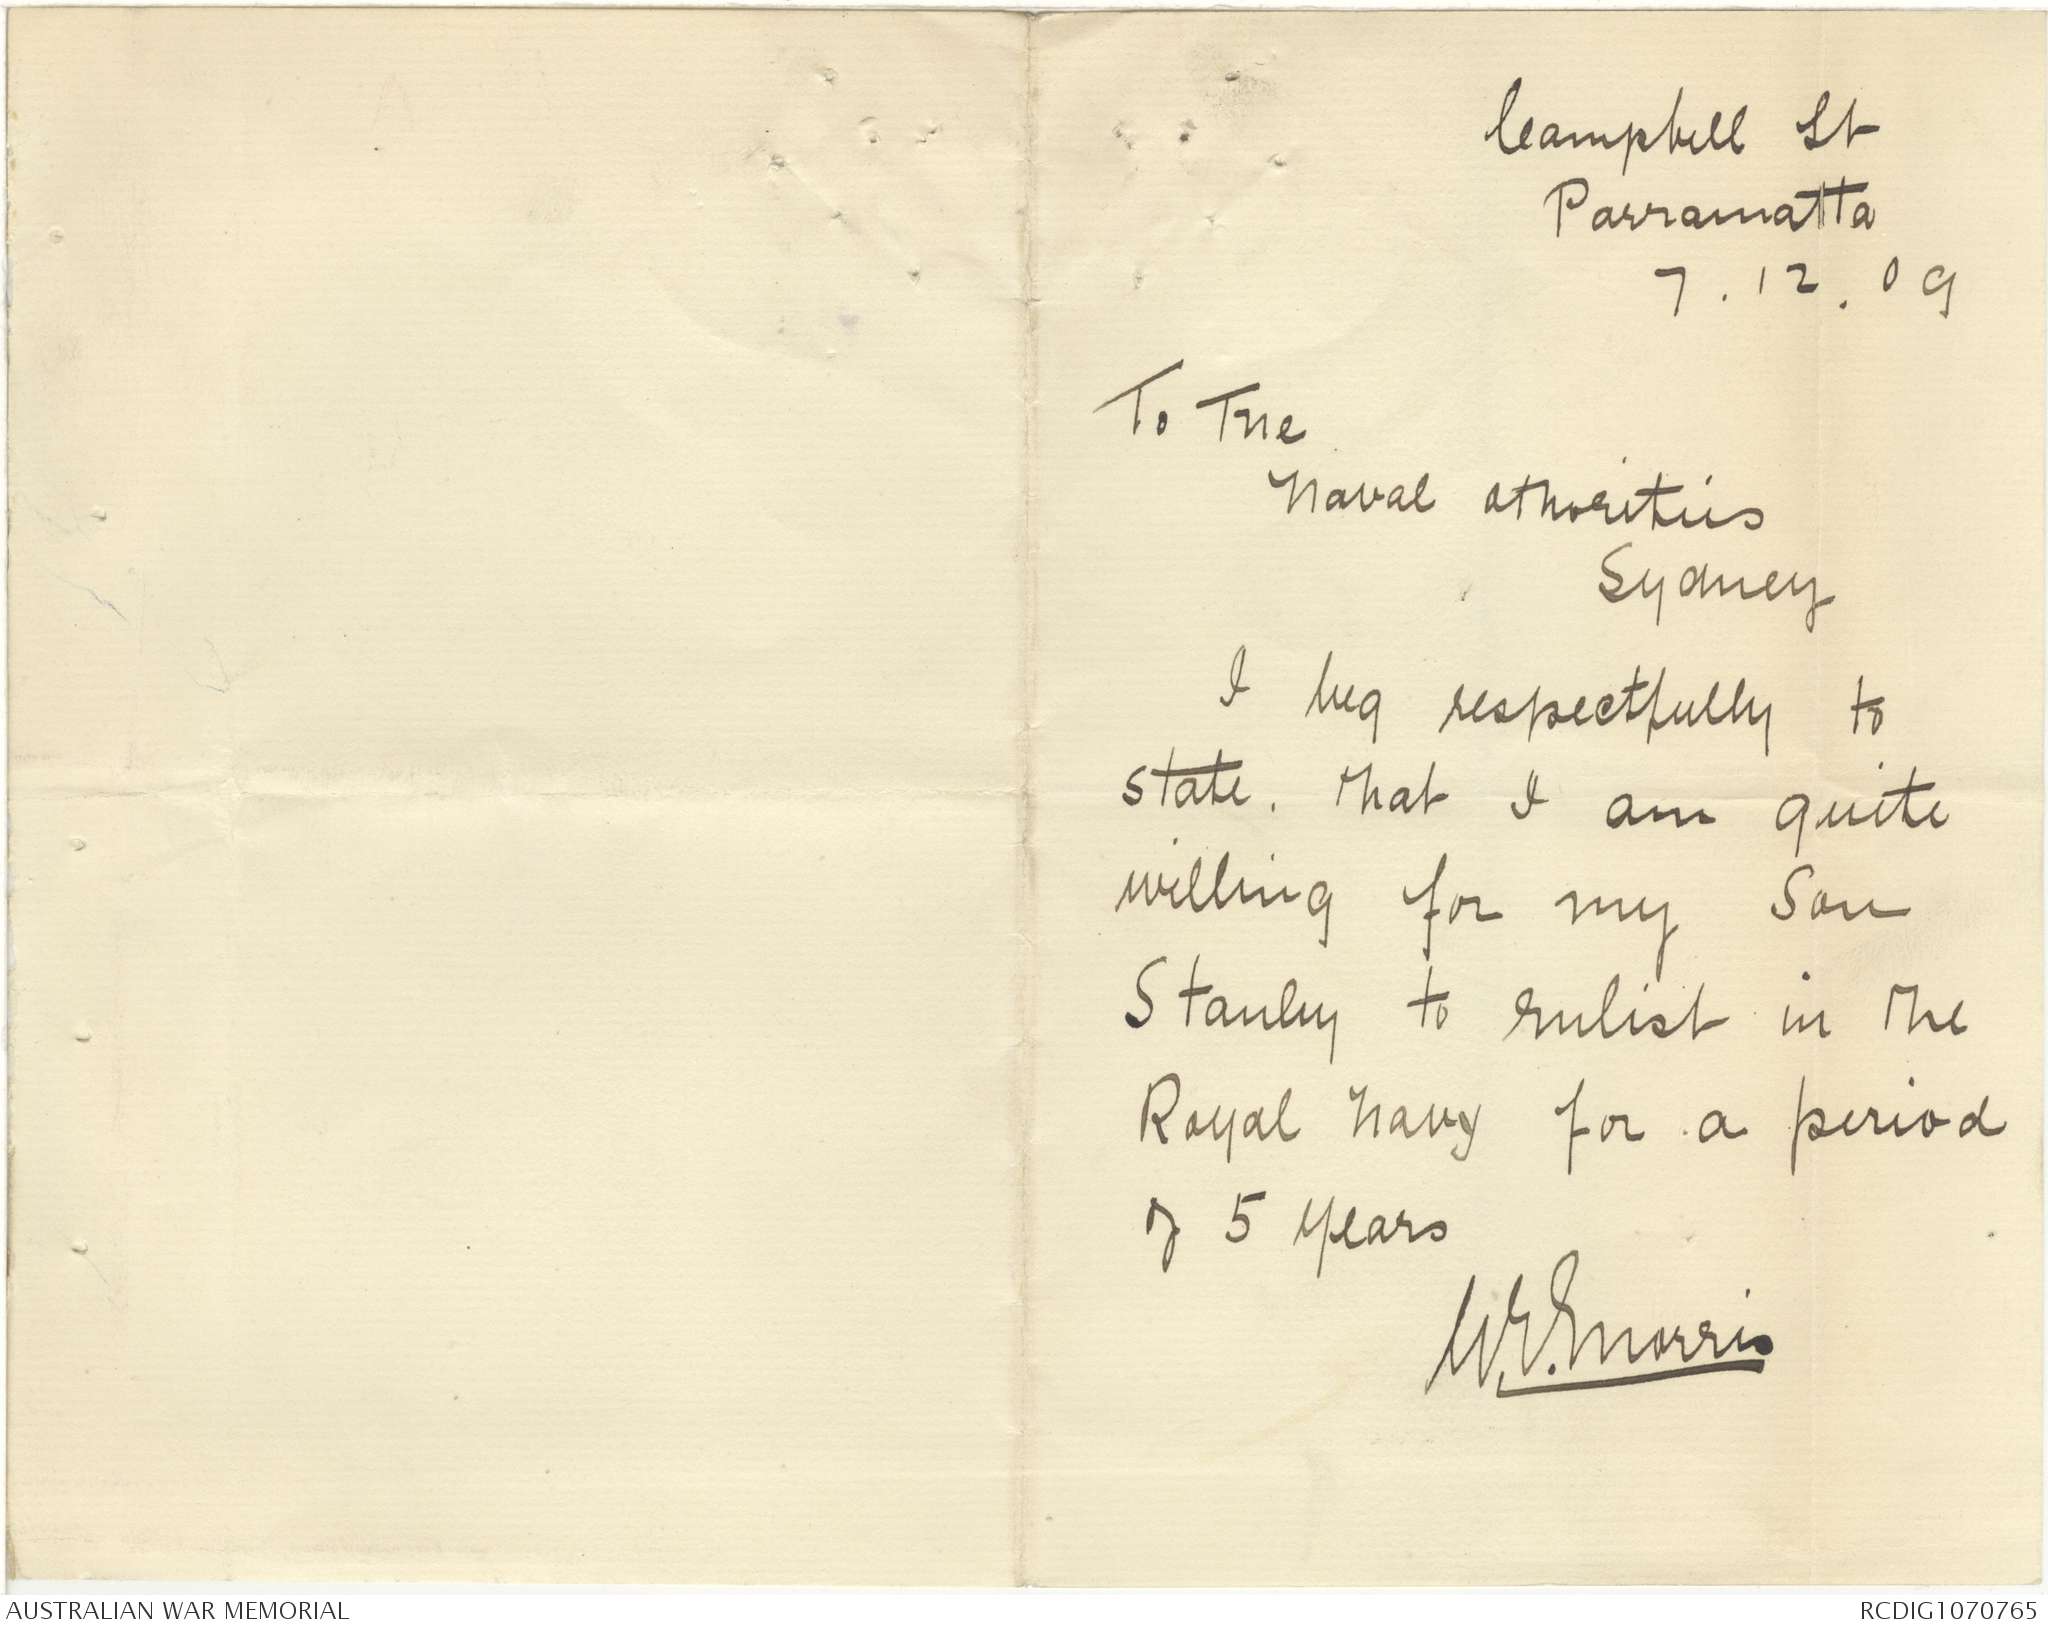 Campbell St
Parramatta
7.12.09
To The
Naval athorities
Sydney
I beg respectfully to
state. that I am quite
willing for my Son
Stanley to enlist in the
Royal Navy for a period
of 5 years
Morris
AUSTRALIAN WAR MEMORIAL
RCDIG1070765